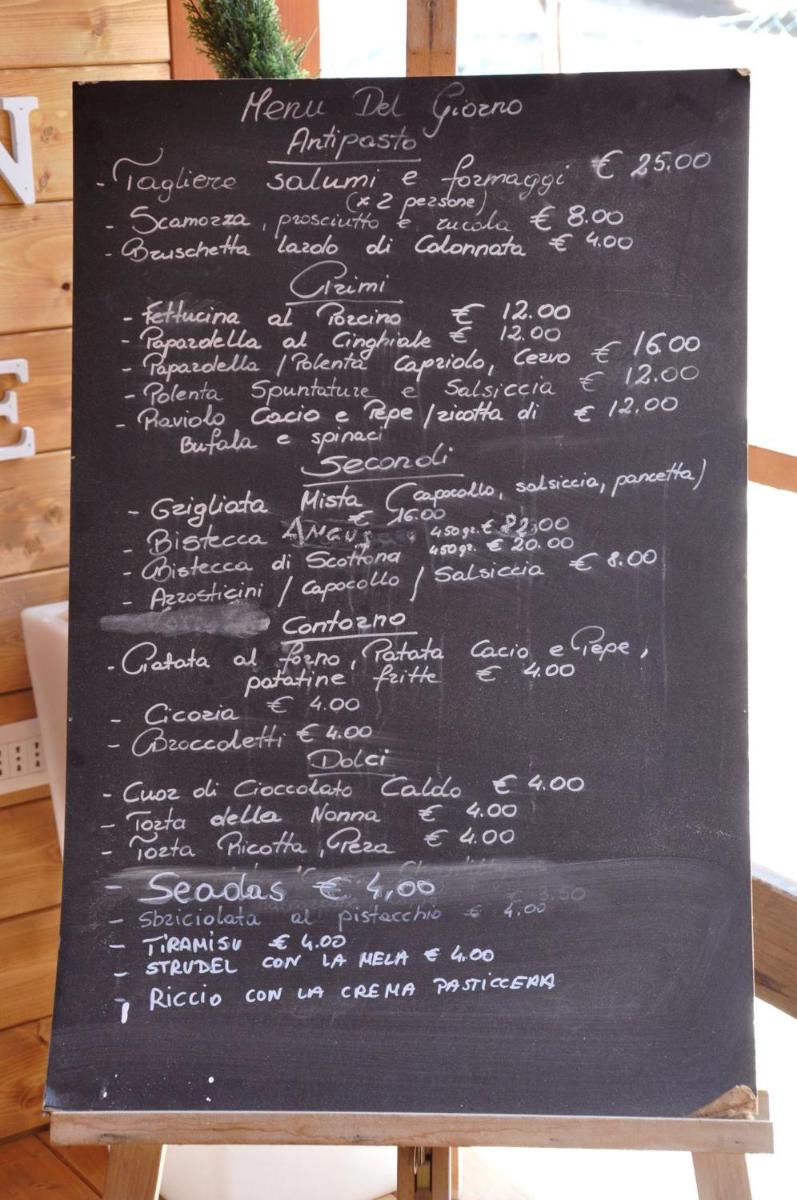 N
E
Menu Del Giorno
Antipasto
- Tagliere salumi e formaggi € 25.00
(x 2 persone)
- Scamorza, prosciutto e rucola € 8.00
- Bruschetta lardo di Colonnata € 4.00
Primi
- Fettucina al Porcino € 12.00
- Papardella al Cinghiale € 12.00
- Papardella / Polenta Capriolo, Cervo € 16.00
- Polenta Spuntature e Salsiccia € 12.00
- Raviolo Cacio e Pepe / ricotta di € 12.00
Bufala e spinaci
Secondi
- Grigliata Mista (capocollo, salsiccia, pancetta)
€ 16.00
- Bistecca Angus 450gr. €
- Bistecca di Scottona 450gr. € 20.00
- Arrosticini / Capocollo / Salsiccia € 8.00
Contorno
- Patata al forno, Patata Cacio e Pepe,
patatine fritte € 4.00
- Cicoria € 4.00
- Broccoletti € 4.00
Dolci
- Cuor di Cioccolato Caldo € 4.00
- Torta della Nonna € 4.00
- Torta Ricotta, Pera € 4.00
- Seadas € 4,00
- Sbriciolata al pistacchio € 4.00
- TIRAMISU € 4.00
- STRUDEL CON LA MELA € 4.00
- RICCIO CON LA CREMA PASTICCERA